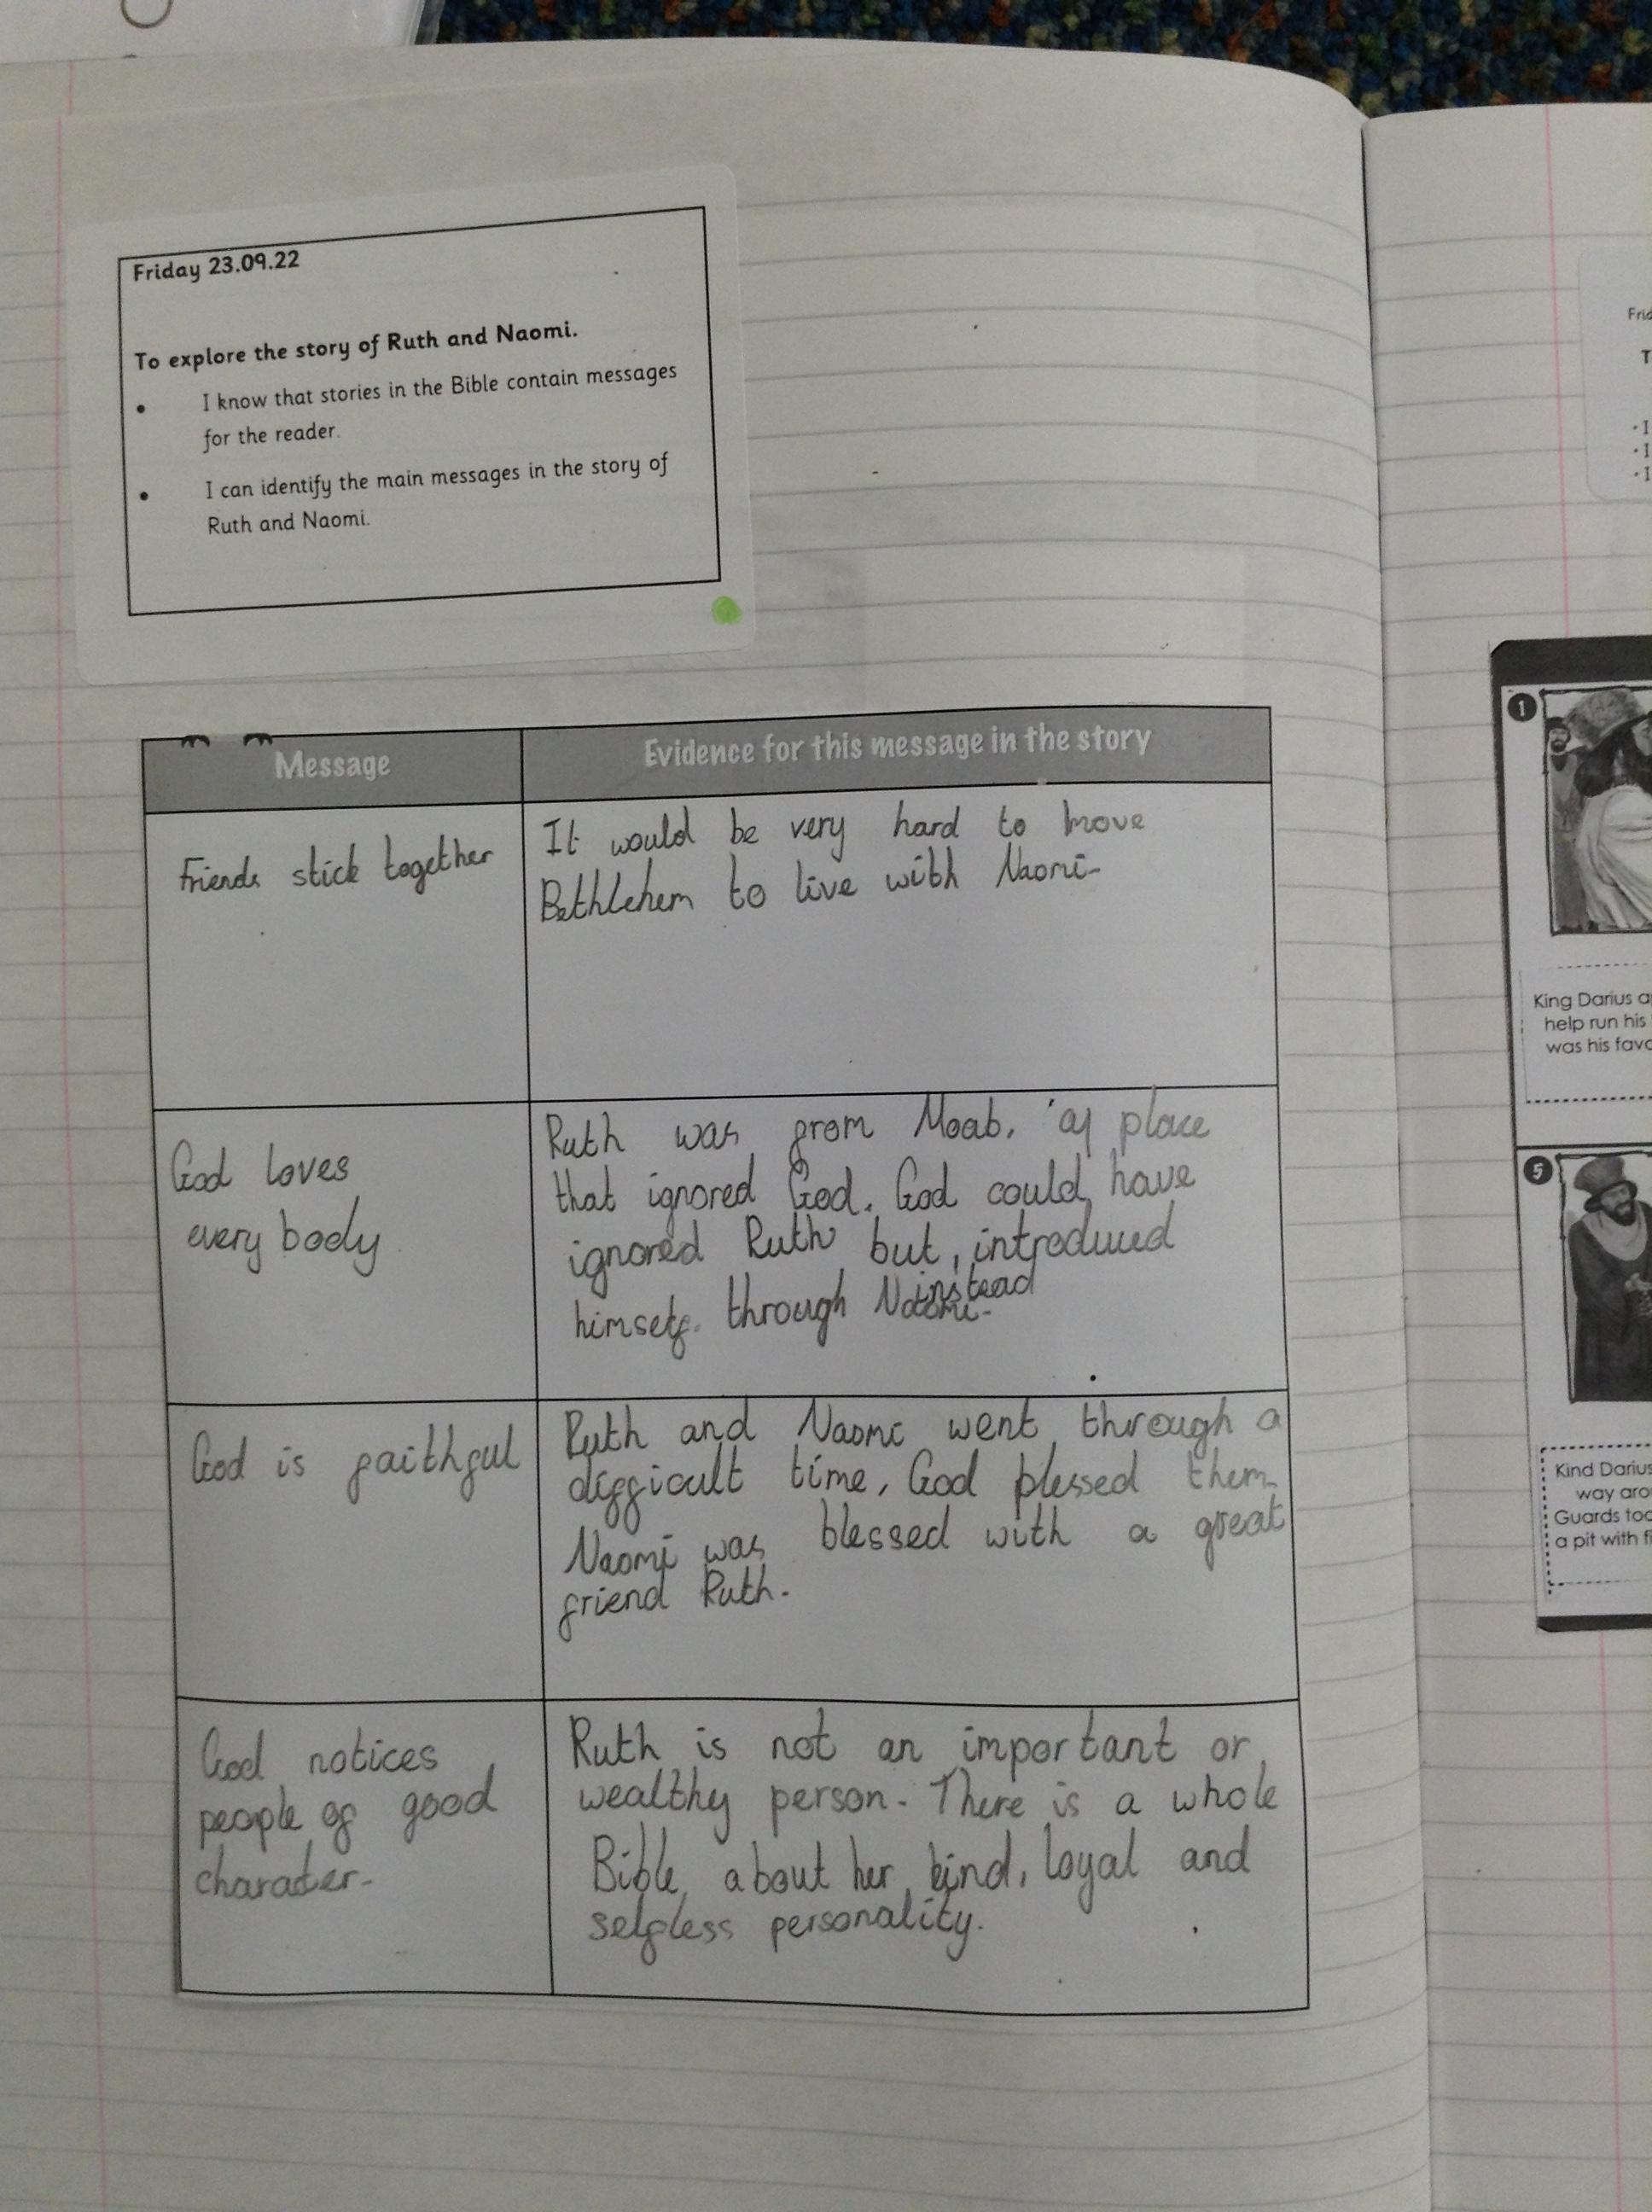 Friday 23.09.22
To explore the story of Ruth and Naomi.
• I know that stories in the Bible contain messages
for the reader.
• I can identify the main messages in the story of
Ruth and Naomi.
Message
Evidence for this message in the story
Friends stick together
It would be very hard to move
Bethlehem to live with Naomi.
God loves
every body
Ruth was from Moab, a place
that ignored God. God could have
ignored Ruth but, introduced
himself through Naomi.
instead
God is faithful
Ruth and Naomi went through a
difficult time, God blessed them.
Naomi was blessed with a great
friend Ruth.
God notices
people of good
character.
Ruth is not an important or
wealthy person. There is a whole
Bible about her kind, loyal and
selfless personality.
T
·I
·I
·I
1
King Darius
help run his
was his
5
Kind Darius
way
Guards
a pit with